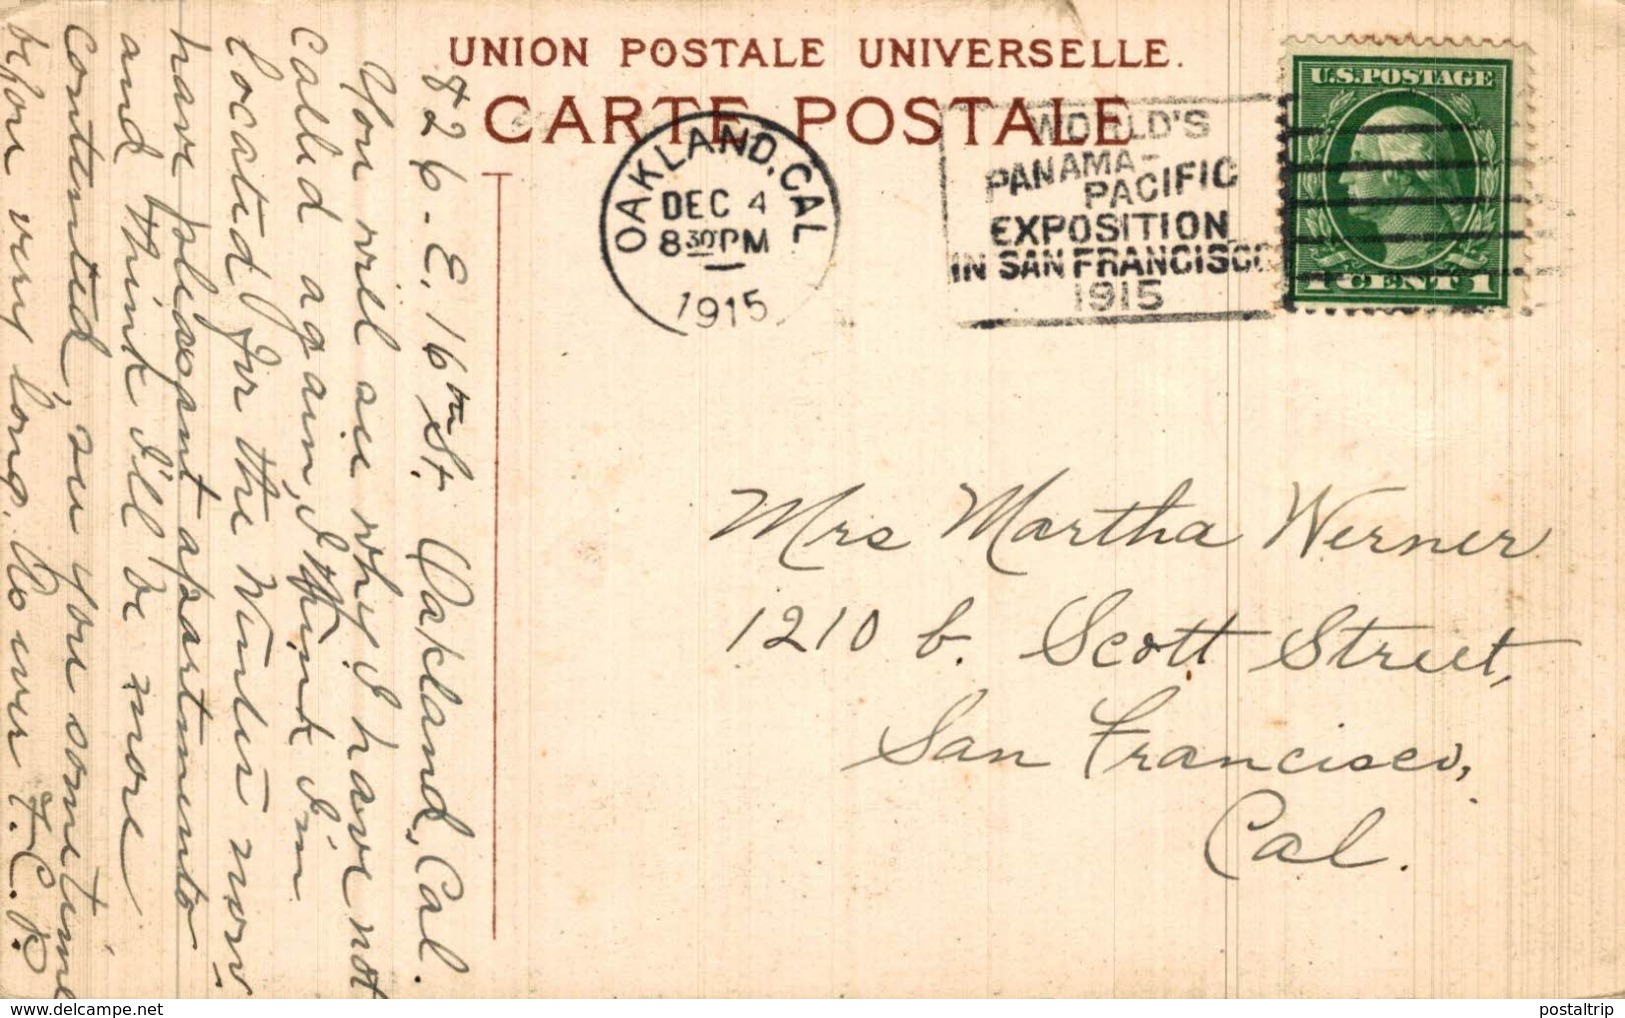 UNION POSTALE UNIVERSELLE.
CARTE POSTALE
OAKLAND, CAL
DEC 4
8 30 PM
1915
WORLD'S
PANAMA-
PACIFIC
EXPOSITION
IN SAN FRANCISCO
1915
U.S. POSTAGE
1 CENT 1
826 - E. 16th St. Oakland, Cal.
You will see why I have not
called again, I think I'm
located for the Winter now.
have pleasant apartments
and think I'll be more
contented, see you sometime
before very long. As ever F.C.P.
Mrs Martha Werner
1210 b. Scott Street,
San Francisco,
Cal.
https://www.delcampe.net
postaltrip